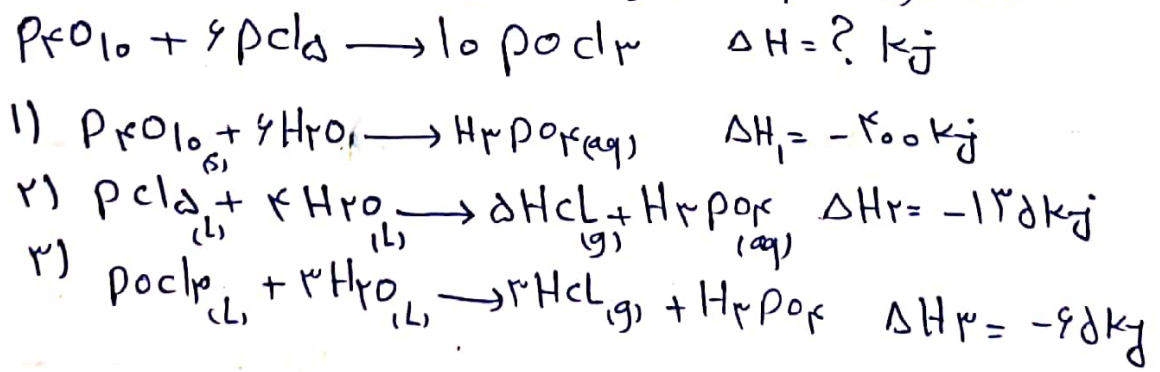 P۴O۱۰ + ۶pcl۵ ⟶ ۱۰ pocl۳ ΔH = ? kj
۱) P۴O۱۰(s) + ۶H۲O ⟶ H۳PO۴(aq) ΔH۱ = -۴۰۰kj
۲) pcl۵(L) + ۴H۲O(L) ⟶ ۵HCL(g) + H۳PO۴(aq) ΔH۲ = -۱۳۵kj
۳) pocl۳(L) + ۳H۲O(L) ⟶ ۳HCL(g) + H۳PO۴ ΔH۳ = -۶۵kj